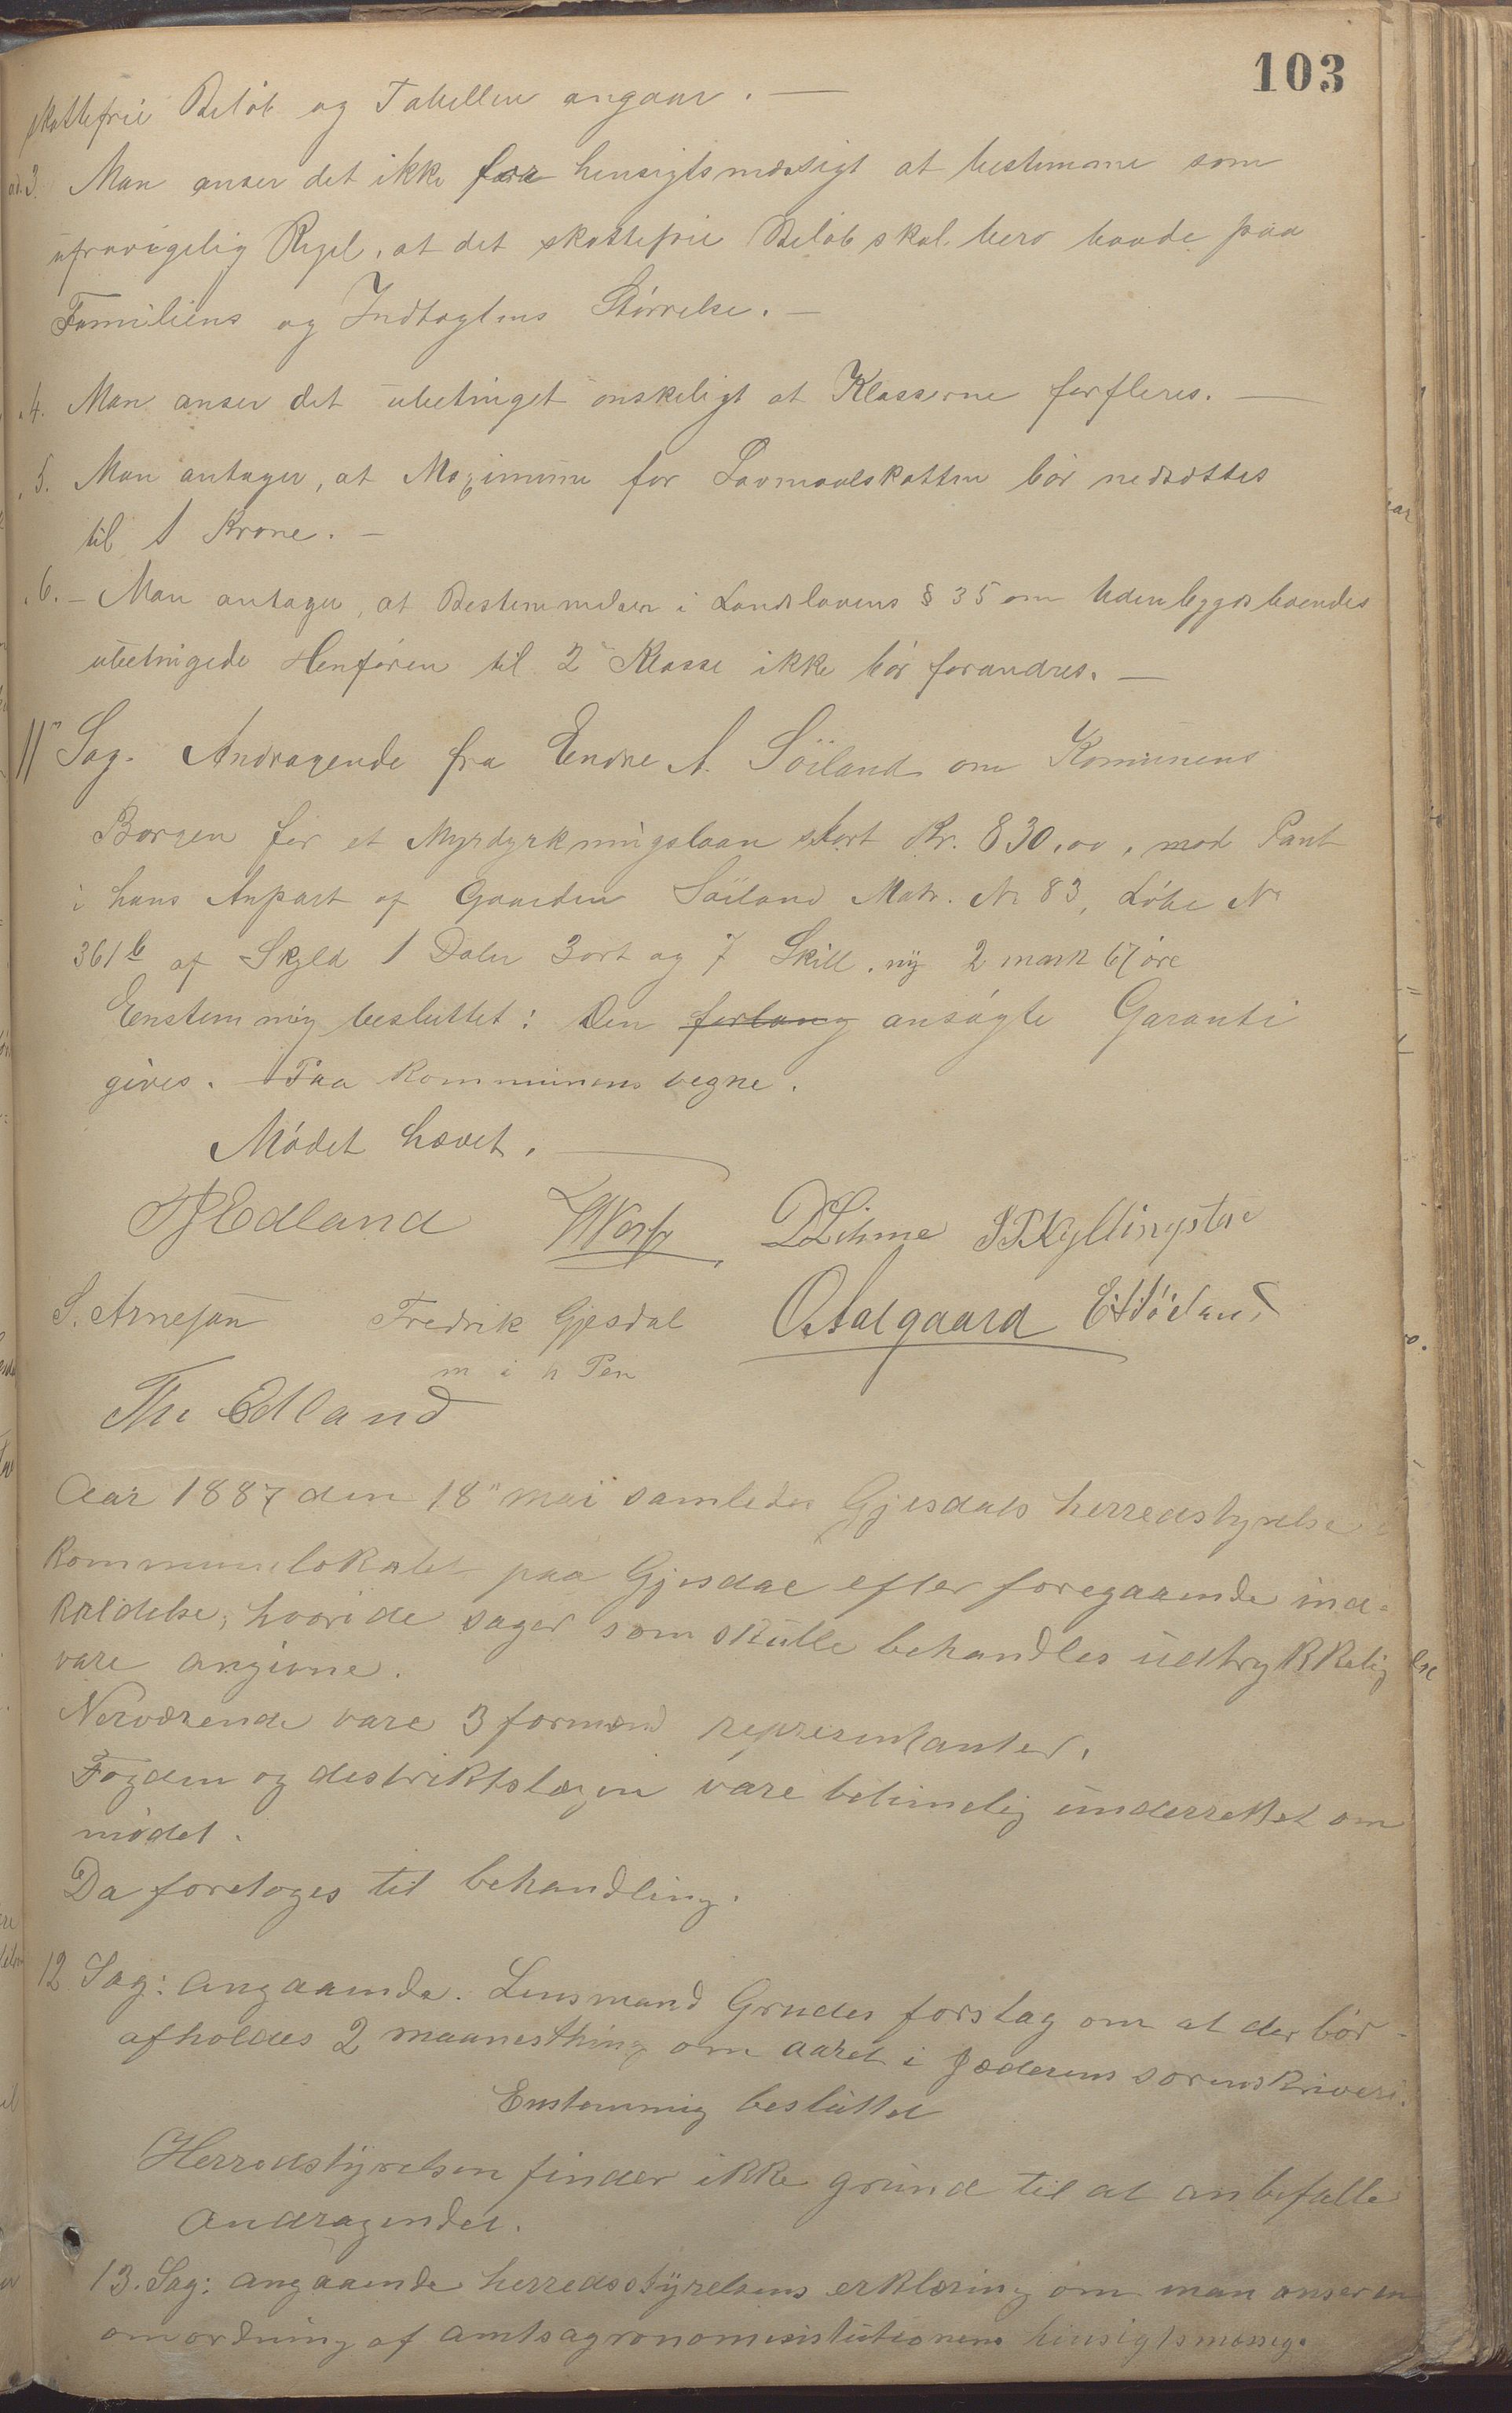 103
skattefrie Beløb og Tabellen angaar. —
ad. 3. Man anser det ikke for hensigtsmæssigt at bestemme som
ufravigelig Regel, at det skattefrie Beløb skal bero baade paa
Familiens og Indtægtens Størrelse. —
" 4. Man anser det ubetinget ønskeligt at Klasserne forfleres. —
" 5. Man antager, at Maximum for Lavmaalskatten bør nedsættes
til 1 Krone. —
" 6. — Man antager, at Bestemmelsen i Landslovens § 35 om Udenbygdsboendes
ubetingede Henføren til 2den Klasse ikke bør forandres. —
11te Sag. Andragende fra Endre A. Söiland om Komunens
Borgen for et Myrdyrkningslaan stort Kr. 830,00, mod Pant
i hans Anpart af Gaarden Söiland Matr. Nr 83, Løbe Nr
361b af Skyld 1 Daler 3 ort og 7 Skill. ny 2 mark 67 øre
Eenstemmig besluttet: Den forlang ansøgte Garanti
gives. Paa Kommunens vegne.
Mødet hævet. —
Edland D Lihme Kyllingstad
S. Arnesen Fredrik Gjesdal O Aalgaard E A Söiland
m i h Pen
Th. Edland
Aar 1887 den 18de mai samledes Gjesdals herredstyrelse i
Kommunelokalet paa Gjesdal efter foregaaende ind-
kaldelse, hvori de sager som skulle behandles udtrykkelig
vare angivne.
Nerværende vare 3 formænd representanter.
Fogden og distriktslægen vare betimelig underrettet om
mødet.
Da foretoges til behandling.
12 Sag: angaaende Lensmand Grudes forslag om at der bør
afholdes 2 maanesthing om aaret i Jæderens sorenskriveri.
Enstemmig besluttet
Herredstyrelsen finder ikke grund til at anbefalle
andragendet.
13. Sag: angaaende herredsstyrelsens erklæring om man anser en
omordning af amtsagronominstitutionen hensigtsmæssig.